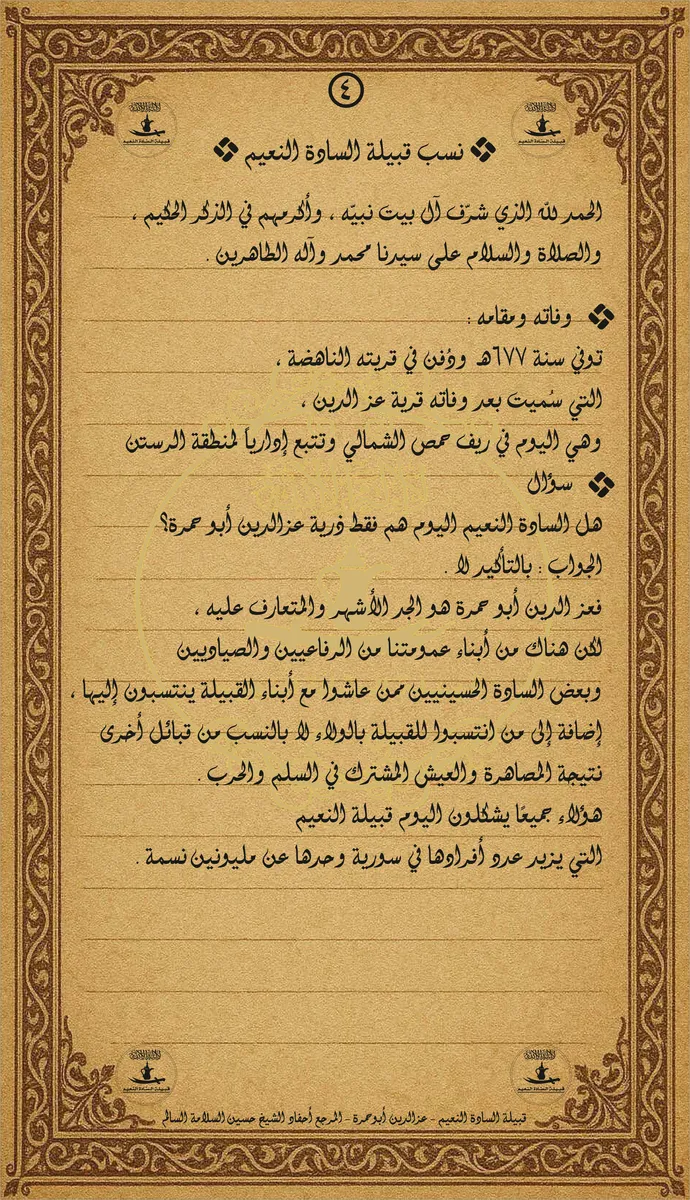 ٤
نسب قبيلة السادة النعيم
الحمد لله الذي شرّف آل بيت نبيّه ، وأكرمهم في الذكر الحكيم ،
والصلاة والسلام على سيدنا محمد وآله الطاهرين .
وفاته ومقامه :
توفي سنة ٦٧٧هـ ودُفن في قريته الناهضة ،
التي سُميت بعد وفاته قرية عز الدين ،
وهي اليوم في ريف حمص الشمالي وتتبع إدارياً لمنطقة الرستن
سؤال
هل السادة النعيم اليوم هم فقط ذرية عزالدين أبو حمرة؟
الجواب : بالتأكيد لا .
فعز الدين أبو حمرة هو الجد الأشهر والمتعارف عليه ،
لكن هناك من أبناء عمومتنا من الرفاعيين والصياديين
وبعض السادة الحسينيين ممن عاشوا مع أبناء القبيلة ينتسبون إليها ،
إضافة إلى من انتسبوا للقبيلة بالولاء لا بالنسب من قبائل أخرى
نتيجة المصاهرة والعيش المشترك في السلم والحرب .
هؤلاء جميعًا يشكلون اليوم قبيلة النعيم
التي يزيد عدد أفرادها في سورية وحدها عن مليونين نسمة .
قبيلة السادة النعيم - عزالدين أبوحمرة - المرجع أحفاد الشيخ حسين السلامة السالم
قبيلة السادة النعيم
قبيلة السادة النعيم
قبيلة السادة النعيم
قبيلة السادة النعيم